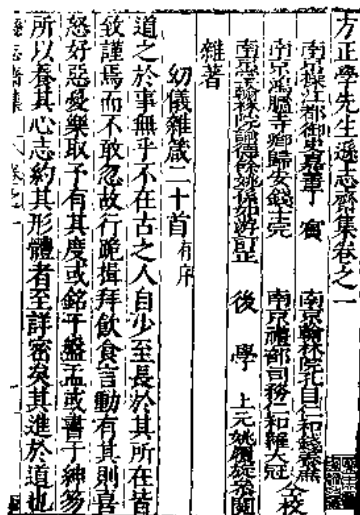 方正學先生遜志齋集卷之一
南京操江都御史嘉 丁賓
南京翰林院孔目仁和錢
南京鴻臚寺卿歸安錢士完
南京禮部司務仁和羅大冠 仝校
南京掌翰林院 姚 孫如游訂正
後學 上元姚履旋 閱
雜著
幼儀雜箴二十首有序
道之於事無乎不在古之人自少至長於其所在皆
致謹焉而不敢忽故行跪揖拜飲食言動有其則喜
怒好惡憂樂取予有其度或銘于盤盂或書于紳笏
所以養其心志約其形體者至詳密矣其進於道也